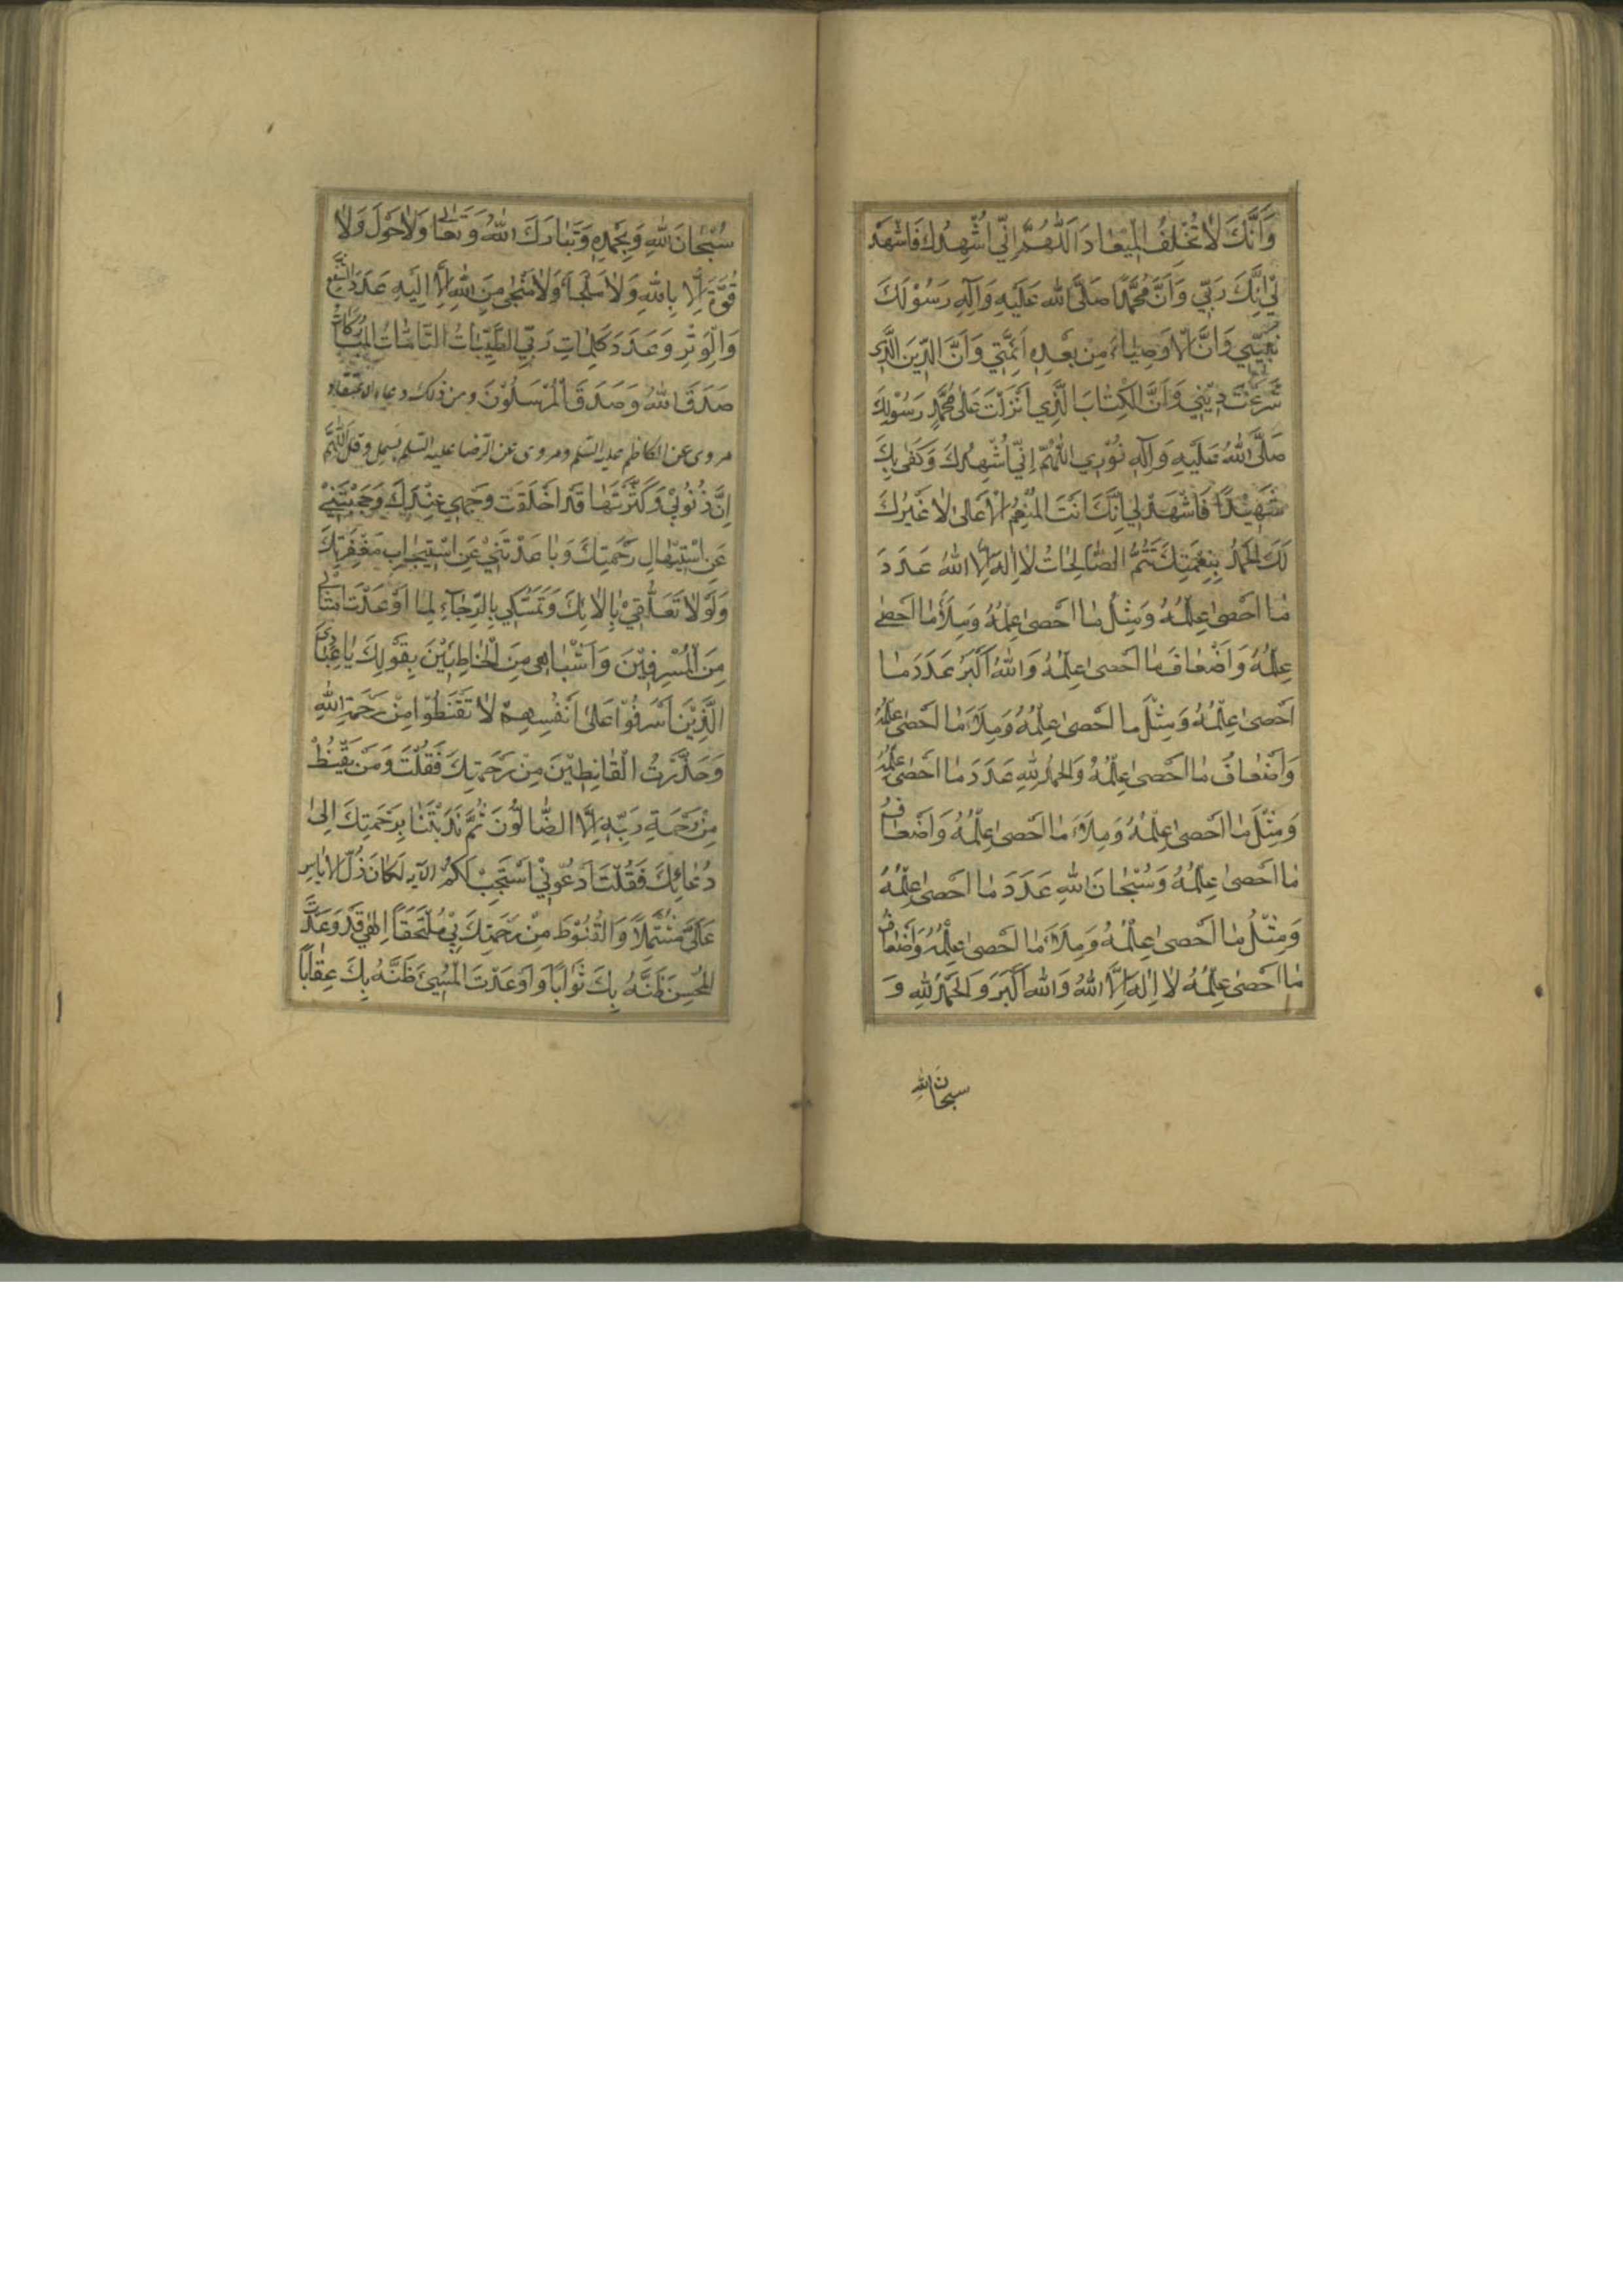 وَاَنَّكَ لَا تُخْلِفُ الْمِيْعَادَ اَللّٰهُمَّ اِنّي اُشْهِدُكَ فَاشْهَدْ
لِيْ اِنَّكَ رَبّي وَاَنَّ مُحَمَّدًا صَلَّى اللهُ عَلَيْهِ وَاٰلِهِ رَسُوْلَكَ
نَبِيّي وَاَنَّ الْاَوْصِيَاءَ مِنْ بَعْدِهِ اَئِمَّتِي وَاَنَّ الدّينَ الَّذِي
شَرَعْتَ دِيْنِي وَاَنَّ الْكِتَابَ الَّذِي اَنْزَلْتَ عَلٰى مُحَمَّدٍ رَسُوْلِكَ
صَلَّى اللهُ عَلَيْهِ وَاٰلِهِ نُوْرِي اللّٰهُمَّ اِنّي اُشْهِدُكَ وَكَفٰى بِكَ
شَهِيْدًا فَاشْهَدْ لِي اِنَّكَ اَنْتَ الْمُنْعِمُ الْاَعْلٰى لَا غَيْرُكَ
لَكَ الْحَمْدُ بِنِعْمَتِكَ تَتُمُّ الصَّالِحَاتُ لَا اِلٰهَ اِلَّا اللهُ عَدَدَ
مَا اَحْصٰى عِلْمُهُ وَمِثْلَ مَا اَحْصٰى عِلْمُهُ وَمِلْاَ مَا اَحْصٰى
عِلْمُهُ وَاَضْعَافَ مَا اَحْصٰى عِلْمُهُ وَاللهُ اَكْبَرُ عَدَدَ مَا
اَحْصٰى عِلْمُهُ وَمِثْلَ مَا اَحْصٰى عِلْمُهُ وَمِلْاَ مَا اَحْصٰى عِلْمُهُ
وَاَضْعَافَ مَا اَحْصٰى عِلْمُهُ وَالْحَمْدُ لِلّٰهِ عَدَدَ مَا اَحْصٰى عِلْمُهُ
وَمِثْلَ مَا اَحْصٰى عِلْمُهُ وَمِلْاَ مَا اَحْصٰى عِلْمُهُ وَاَضْعَافَ
مَا اَحْصٰى عِلْمُهُ وَسُبْحَانَ اللهِ عَدَدَ مَا اَحْصٰى عِلْمُهُ
وَمِثْلُ مَا اَحْصٰى عِلْمُهُ وَمِلْاَ مَا اَحْصٰى عِلْمُهُ وَاَضْعَافَ
مَا اَحْصٰى عِلْمُهُ لَا اِلٰهَ اِلَّا اللهُ وَاللهُ اَكْبَرُ وَالْحَمْدُ لِلّٰهِ وَ
سبحان الله
سُبْحَانَ اللهِ وَبِحَمْدِهِ وَتَبَارَكَ اللهُ وَتَعَالٰى وَلَا حَوْلَ وَلَا
قُوَّةَ اِلَّا بِاللهِ وَلَا مَلْجَأَ وَلَا مَنْجٰى مِنَ اللهِ اِلَّا اِلَيْهِ عَدَدَ الشَّفْعِ
وَالْوَتْرِ وَعَدَدَ كَلِمَاتِ رَبّي الطَّيِّبَاتِ التَّامَّاتِ الْمُبَارَكَاتِ
صَدَقَ اللهُ وَصَدَقَ الْمُرْسَلُوْنَ ومن ذلك دعاء الاعتقاد
مروى عن الكاظم عليه السّلم ومروى عن الرّضا عليه السّلم بسمل وقل اَللّٰهُمَّ
اِنَّ ذُنُوْبِيْ وَكَثْرَتَهَا قَدْ اَخْلَقَتْ وَجْهِي عِنْدَكَ وَحَجَبَتْنِيْ
عَنِ اسْتِيْهَالِ رَحْمَتِكَ وَبَاعَدَتْنِيْ عَنِ اسْتِيْجَابِ مَغْفِرَتِكَ
وَلَوْلَا تَعَلُّقِيْ بِاٰلَائِكَ وَتَمَسُّكِي بِالرَّجَاءِ لِمَا اَوْعَدْتَ اَمْثَالِي
مِنَ الْمُسْرِفِيْنَ وَاَشْبَاهِي مِنَ الْخَاطِئِيْنَ بِقَوْلِكَ يَا عِبَادِيَ
الَّذِيْنَ اَسْرَفُوْا عَلٰى اَنْفُسِهِمْ لَا تَقْنَطُوْا مِنْ رَحْمَةِ اللهِ
وَحَذَّرْتَ الْقَانِطِيْنَ مِنْ رَحْمَتِكَ فَقُلْتَ وَمَنْ يَقْنَطُ
مِنْ رَحْمَةِ رَبِّهِ اِلَّا الضَّالُّوْنَ ثُمَّ نَدَبْتَنَا بِرَحْمَتِكَ اِلٰى
دُعَائِكَ فَقُلْتَ اَدْعُوْنِيْ اَسْتَجِبْ لَكُمْ الآيه لَكَانَ ذُلُّ الْاِيَاسِ
عَلَيَّ مُشْتَمِلًا وَالْقُنُوْطُ مِنْ رَحْمَتِكَ بِيْ مُلْتَحِفًا اِلٰهِي قَدْ وَعَدْتَ
الْمُحْسِنَ ظَنَّهُ بِكَ ثَوَابًا وَاَوْعَدْتَ الْمُسِيْئَ ظَنَّهُ بِكَ عِقَابًا